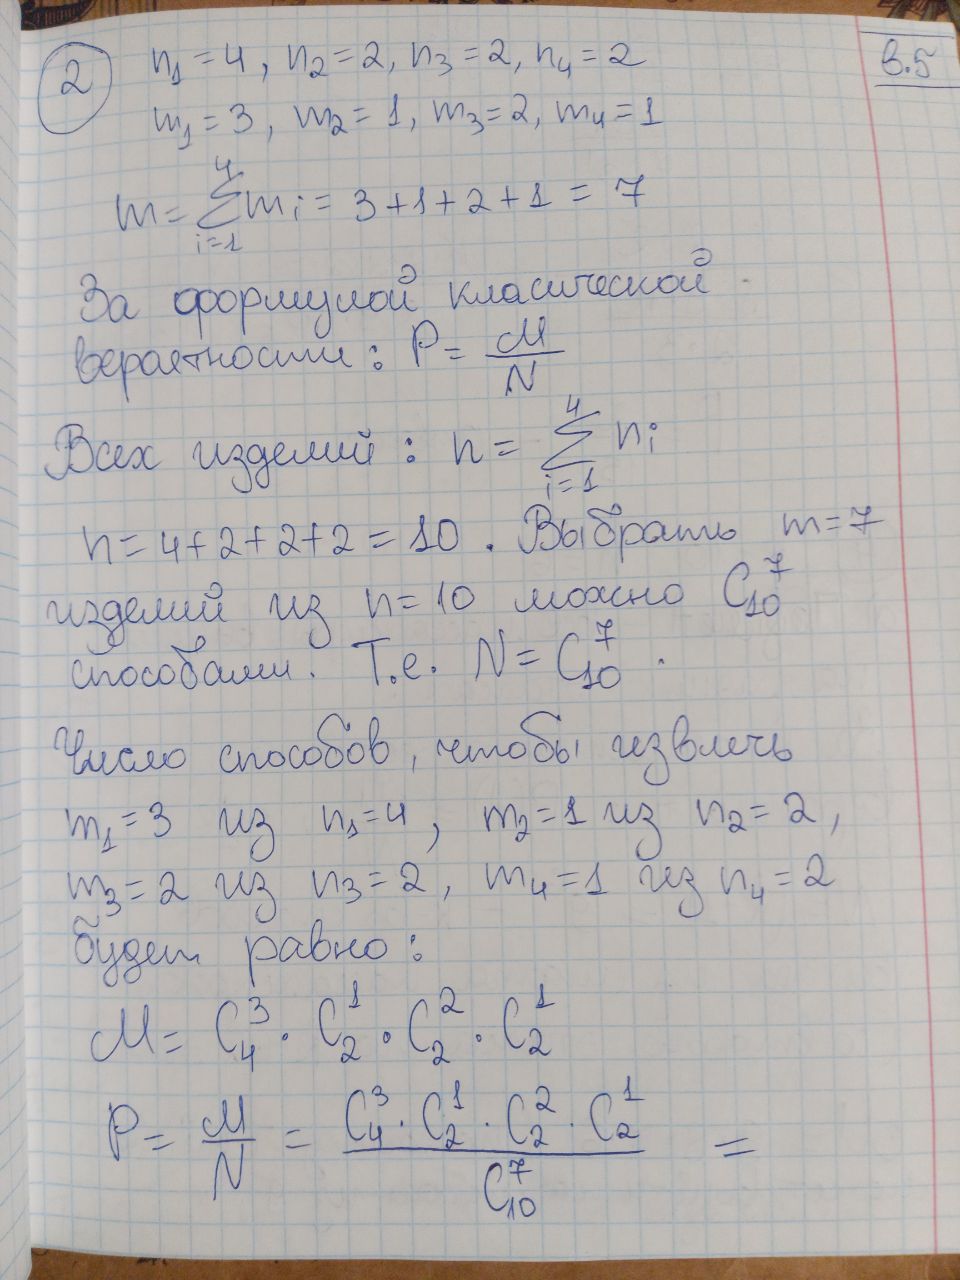 в.5
2 n₁=4, n₂=2, n₃=2, n₄=2
m₁=3, m₂=1, m₃=2, m₄=1
m= ∑_{i=1}^{4} mᵢ = 3+1+2+1=7
За формулой класической
вероятности: P= M/N
Всех изделий: n= ∑_{i=1}^{4} nᵢ
n=4+2+2+2=10. Выбрать m=7
изделий из n=10 можно C_{10}^{7}
способами. Т.е. N=C_{10}^{7}.
Число способов, чтобы извлечь
m₁=3 из n₁=4, m₂=1 из n₂=2,
m₃=2 из n₃=2, m₄=1 из n₄=2
будет равно:
M= C_{4}^{3} · C_{2}^{1} · C_{2}^{2} · C_{2}^{1}
P= M/N = (C_{4}^{3} · C_{2}^{1} · C_{2}^{2} · C_{2}^{1})/C_{10}^{7} =